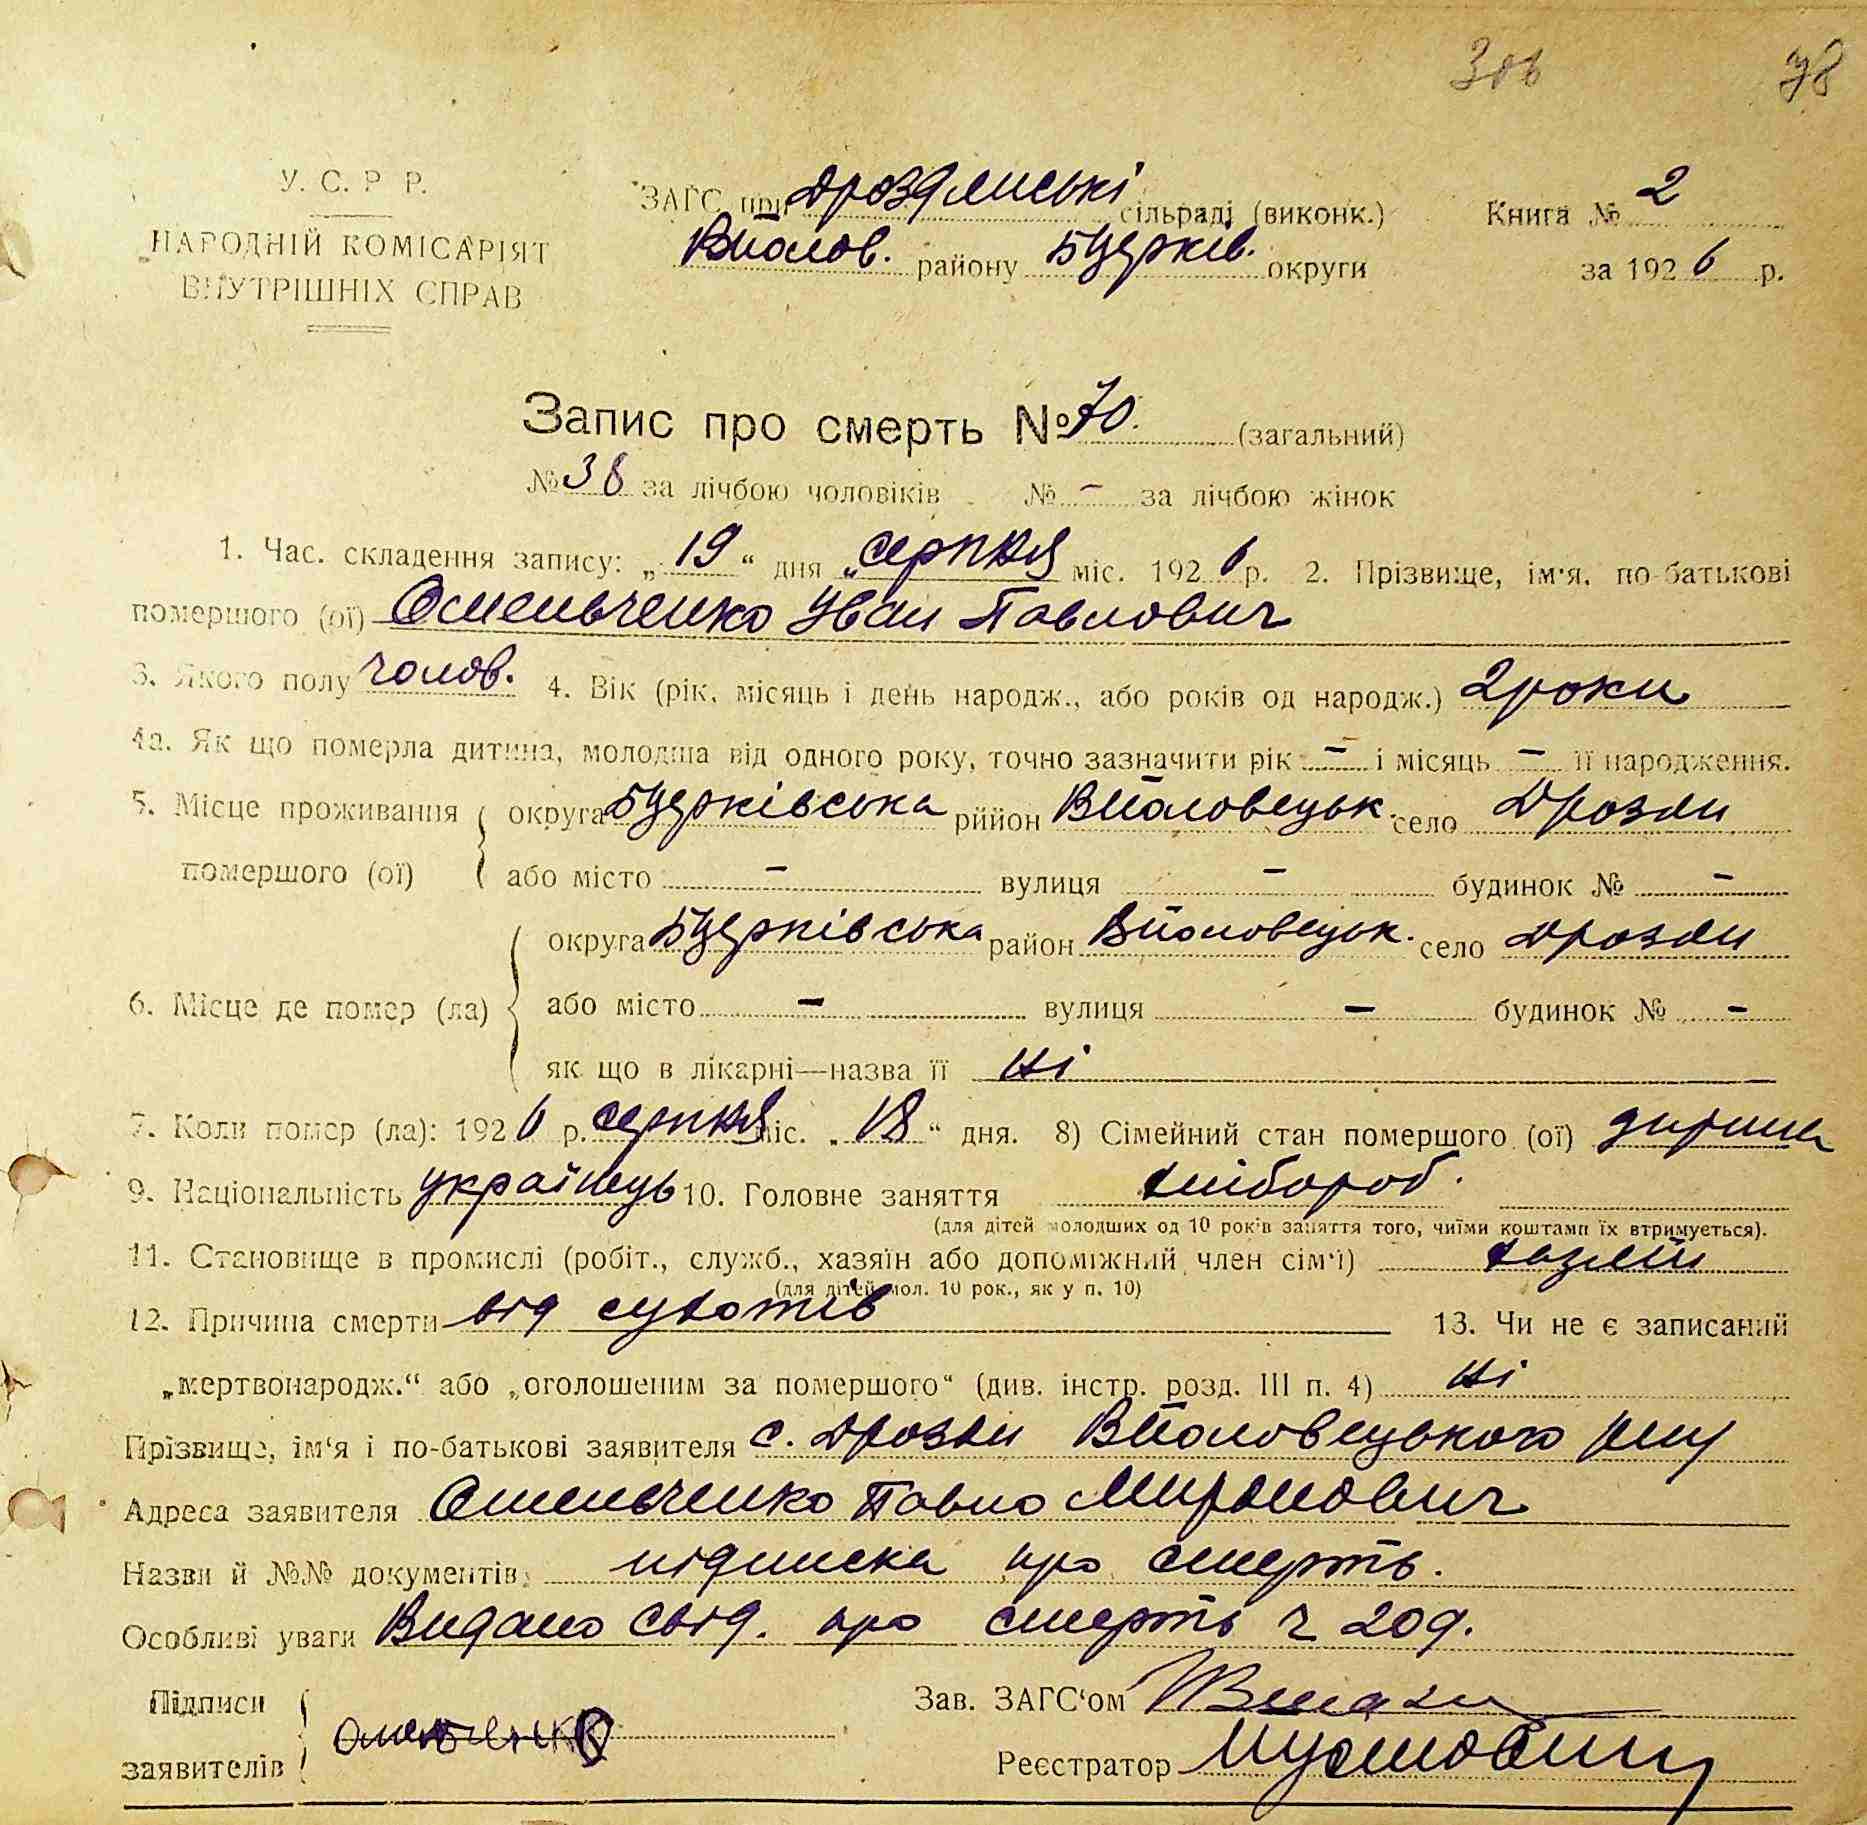 78
У. С. Р Р.
НАРОДНІЙ КОМІСАРІЯТ
ВНУТРІШНІХ СПРАВ
ЗАГС при Дроздянські сільраді (виконк.)
Книга № 2
району Бцерків. округи
за 1926 р.
Запис про смерть № 70. (загальний)
№ 38 за лічбою чоловіків № - за лічбою жінок
1. Час. складення запису: „19“ дня „серпня міс. 1926 р. 2. Прізвище, ім'я, по-батькові
помершого (ої) Омельченко Іван Павлович
3. Якого полу чолов. 4. Вік (рік, місяць і день народж., або років од народж.) 2 роки
4а. Як що померла дитина, молодша від одного року, точно зазначити рік - і місяць - її народження.
5. Місце проживання округа Бцерківська рййон село Дрозди
помершого (ої) або місто - вулиця - будинок № -
округа Бцерківська район село Дрозди
6. Місце де помер (ла) або місто - вулиця - будинок № -
як що в лікарні—назва її ні
7. Коли помер (ла): 1926 р. серпня міс. „18“ дня. 8) Сімейний стан помершого (ої) дитина
9. Національність українець 10. Головне заняття хлібороб.
(для дітей молодших од 10 років заняття того, чиїми коштами їх втримується).
11. Становище в промислі (робіт., служб., хазяїн або допоміжний член сім'ї) хазяїн
(для дітей мол. 10 рок., як у п. 10)
12. Причина смерти від сухотів 13. Чи не є записаний
„мертвонародж.“ або „оголошеним за помершого“ (див. інстр. розд. III п. 4) ні
Прізвище, ім'я і по-батькові заявителя с. Дрозди
Адреса заявителя Омельченко Павло Миронович
Назви й №№ документів: підписка про смерть.
Особливі уваги Видано свід. про смерть ч 209.
Підписи
заявителів Омельченко
Зав. ЗАГС'ом
Реєстратор